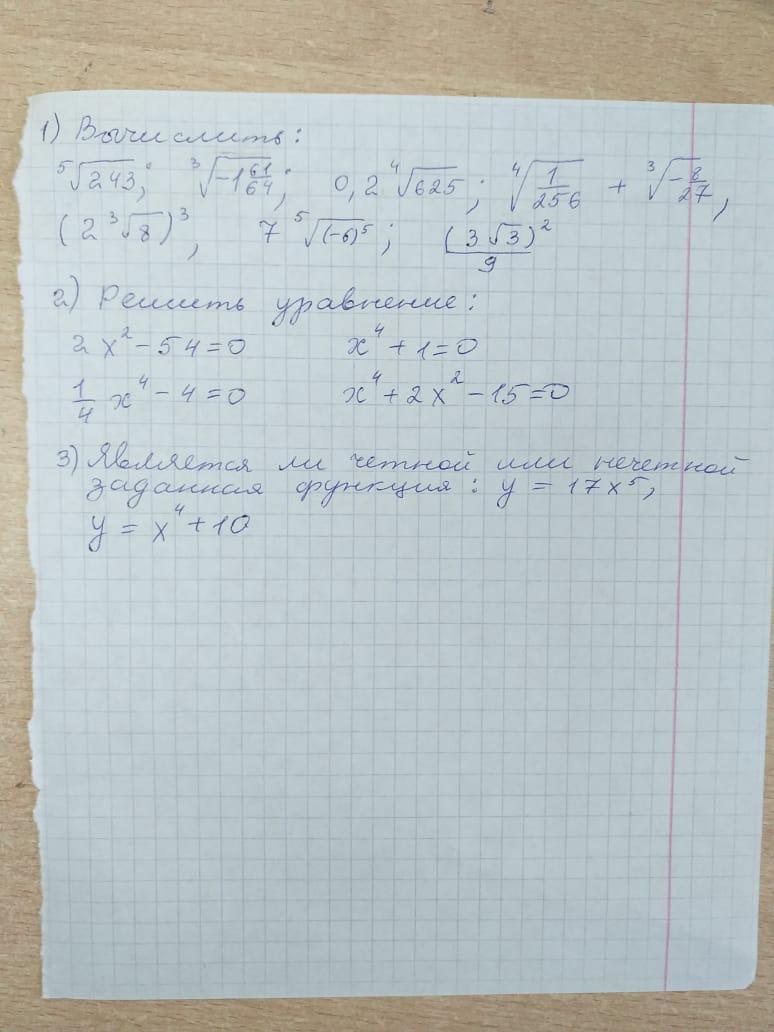 1) Вычислить:
⁵√243; ³√-1 61/64; 0,2 ⁴√625; ⁴√1/256 + ³√-8/27,
(2 ³√8)³, 7 ⁵√(-6)⁵; (3√3)²/9
2) Решить уравнение:
2x² - 54 = 0 x⁴ + 1 = 0
1/4 x⁴ - 4 = 0 x⁴ + 2x² - 15 = 0
3) Является ли четной или нечетной
заданная функция: y = 17x⁵,
y = x⁴ + 10